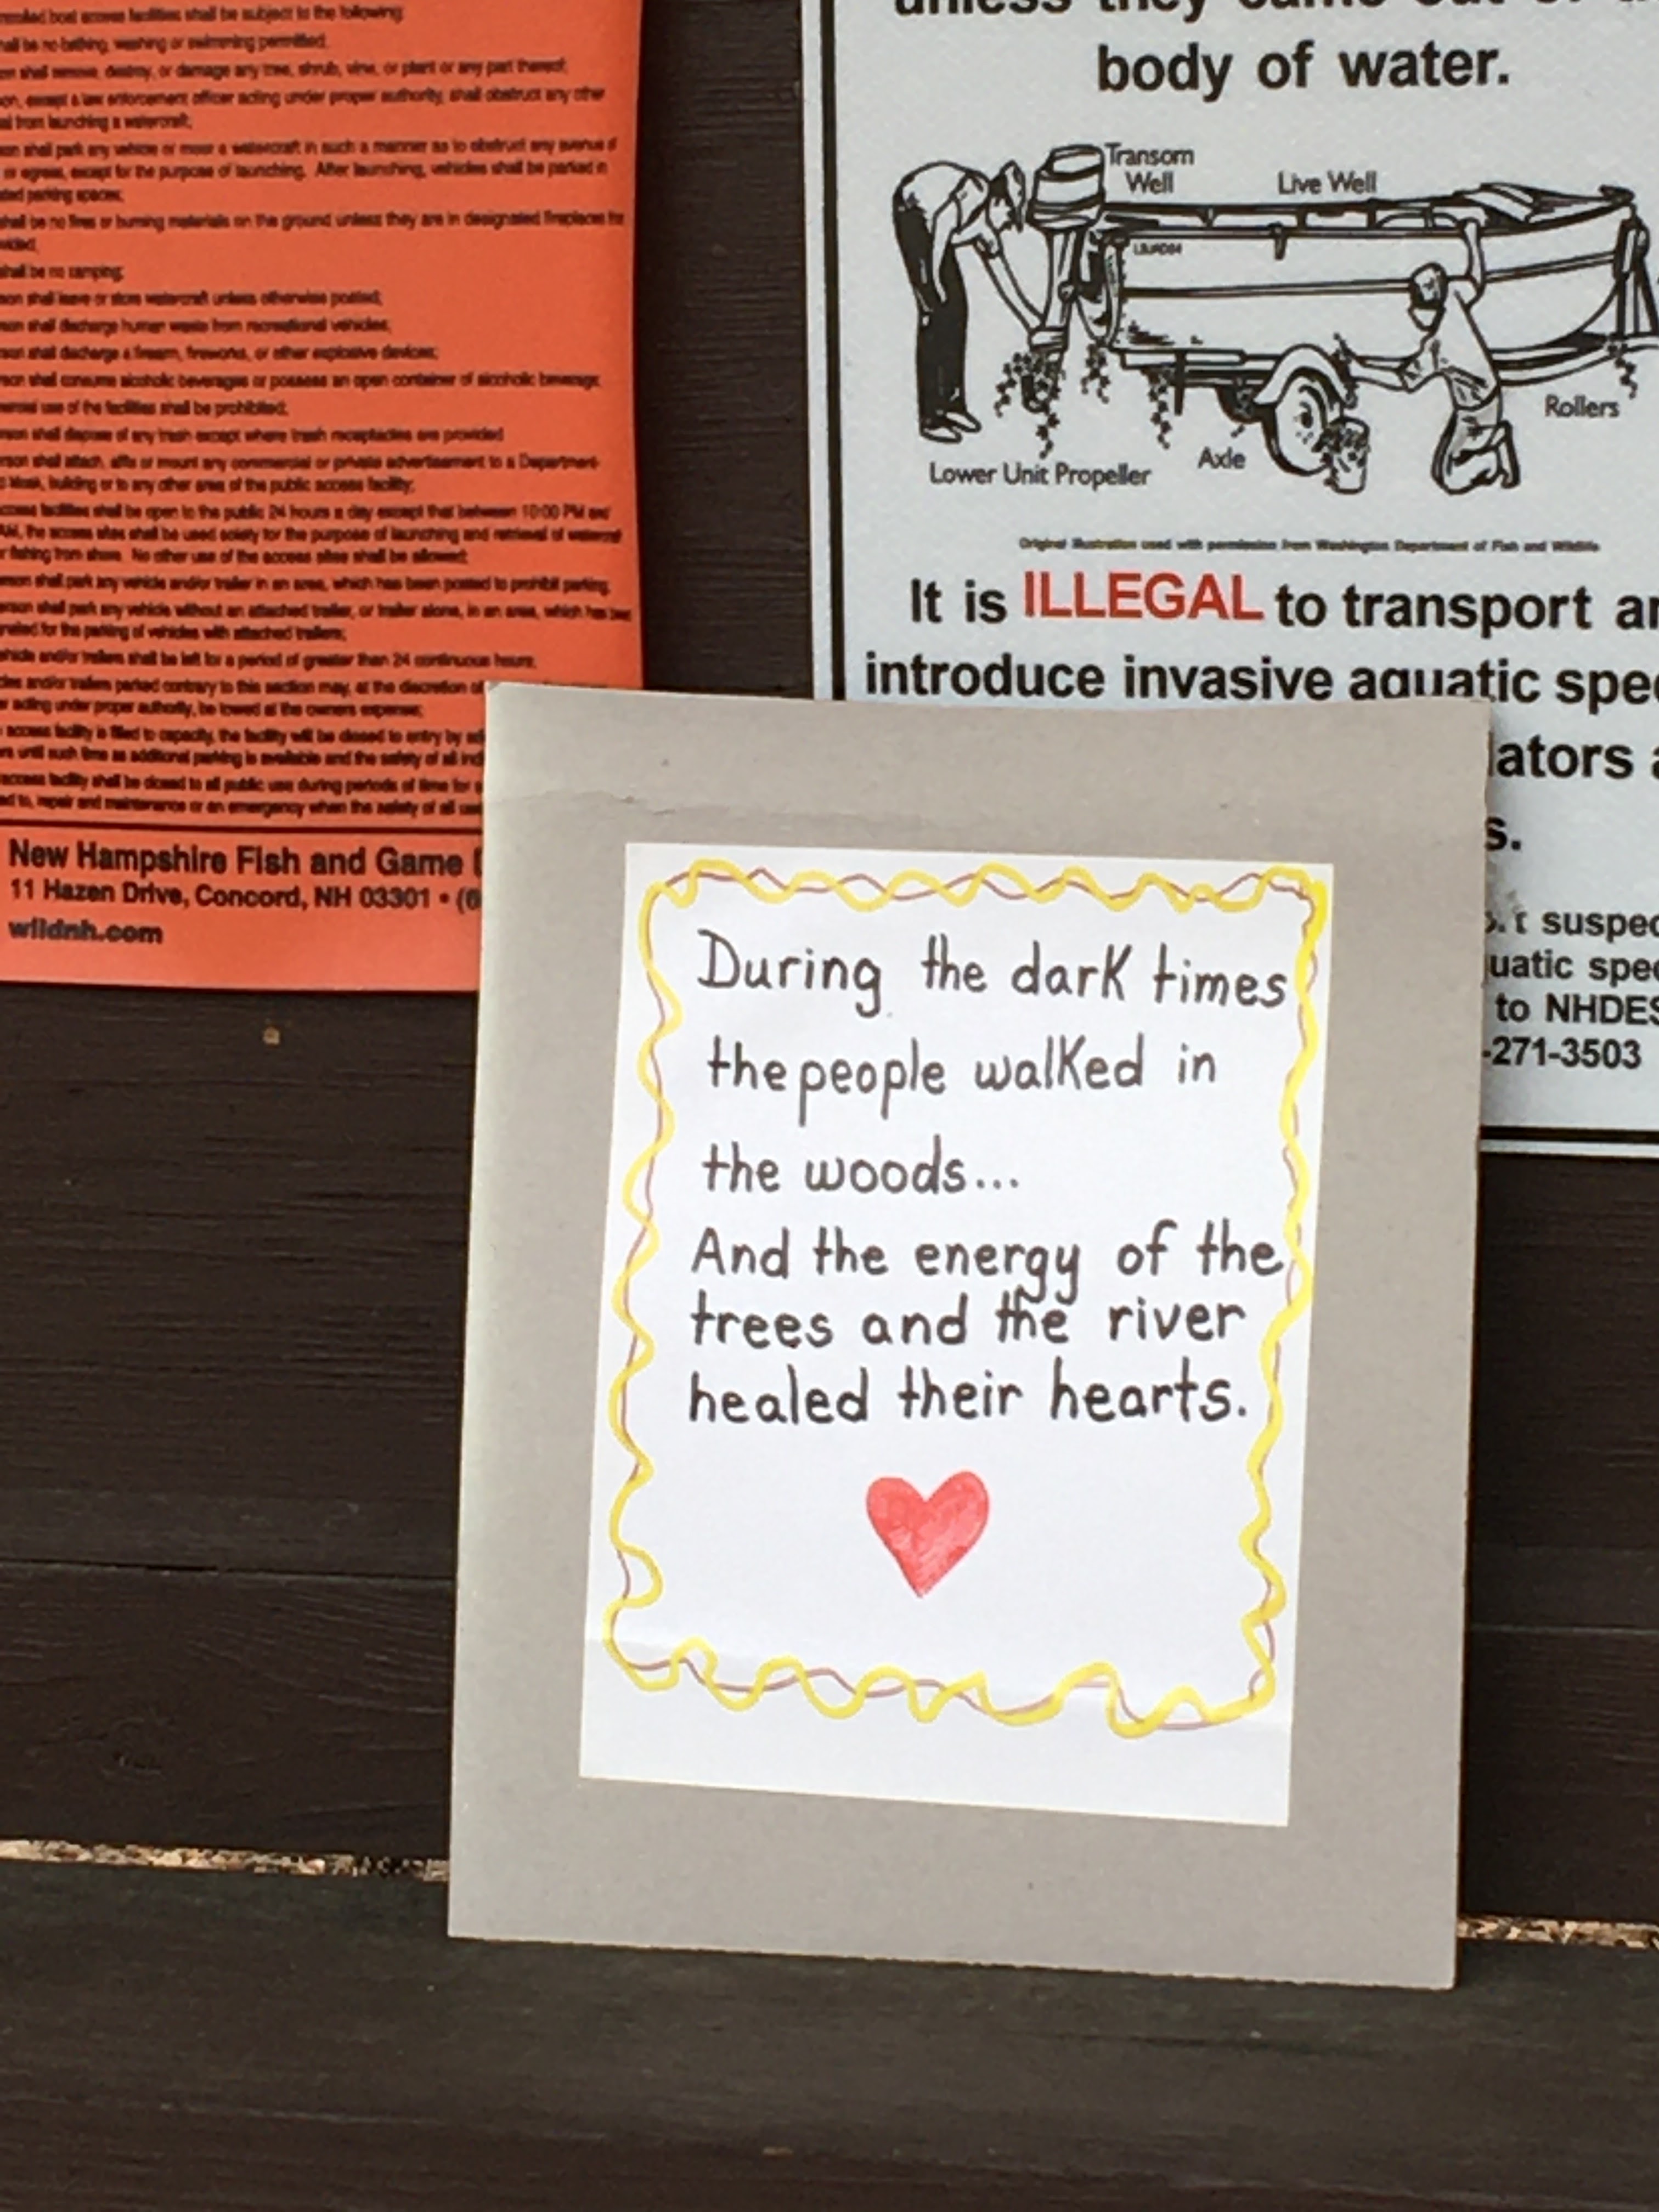 controlled boat access facilities shall be subject to the following:
shall be no bathing, washing or swimming permitted.
shall remove, destroy, or damage any tree, shrub, vine, or plant or any part thereof;
except a law enforcement officer acting under proper authority, shall obstruct any other
from launching a watercraft;
shall park any vehicle or moor a watercraft in such a manner as to obstruct any avenue of
or egress, except for the purpose of launching. After launching, vehicles shall be parked in
parking spaces;
shall be no fires or burning materials on the ground unless they are in designated fireplaces for
shall be no camping;
shall leave or store watercraft unless otherwise posted;
shall discharge human waste from recreational vehicles;
shall discharge a firearm, fireworks, or other explosive devices;
shall consume alcoholic beverages or possess an open container of alcoholic beverage;
use of the facilities shall be prohibited;
shall dispose of any trash except where trash receptacles are provided
shall attach, affix or mount any commercial or private advertisement to a Department-
kiosk, building or to any other area of the public access facility;
access facilities shall be open to the public 24 hours a day except that between 10:00 PM and
AM, the access sites shall be used solely for the purpose of launching and retrieval of watercraft
fishing from shore. No other use of the access sites shall be allowed;
shall park any vehicle and/or trailer in an area, which has been posted to prohibit parking.
shall park any vehicle without an attached trailer, or trailer alone, in an area, which has been
for the parking of vehicles with attached trailers;
and/or trailers shall be left for a period of greater than 24 continuous hours;
and/or trailers parked contrary to this section may, at the discretion of
acting under proper authority, be towed at the owners expense;
access facility is filled to capacity, the facility will be closed to entry by
until such time as additional parking is available and the safety of all
access facility shall be closed to all public use during periods of time for
to, repair and maintenance or an emergency when the safety of all
New Hampshire Fish and Game
11 Hazen Drive, Concord, NH 03301 • (6
wildnh.com
unless they came out of
body of water.
Transom
Well
Live Well
Rollers
Axle
Lower Unit Propeller
Original illustration used with permission from Washington Department of Fish and Wildlife
It is ILLEGAL to transport
introduce invasive aquatic spec
lators
s.
suspec
uatic spec
to NHDES
-271-3503
During the dark times
the people walked in
the woods...
And the energy of the
trees and the river
healed their hearts.